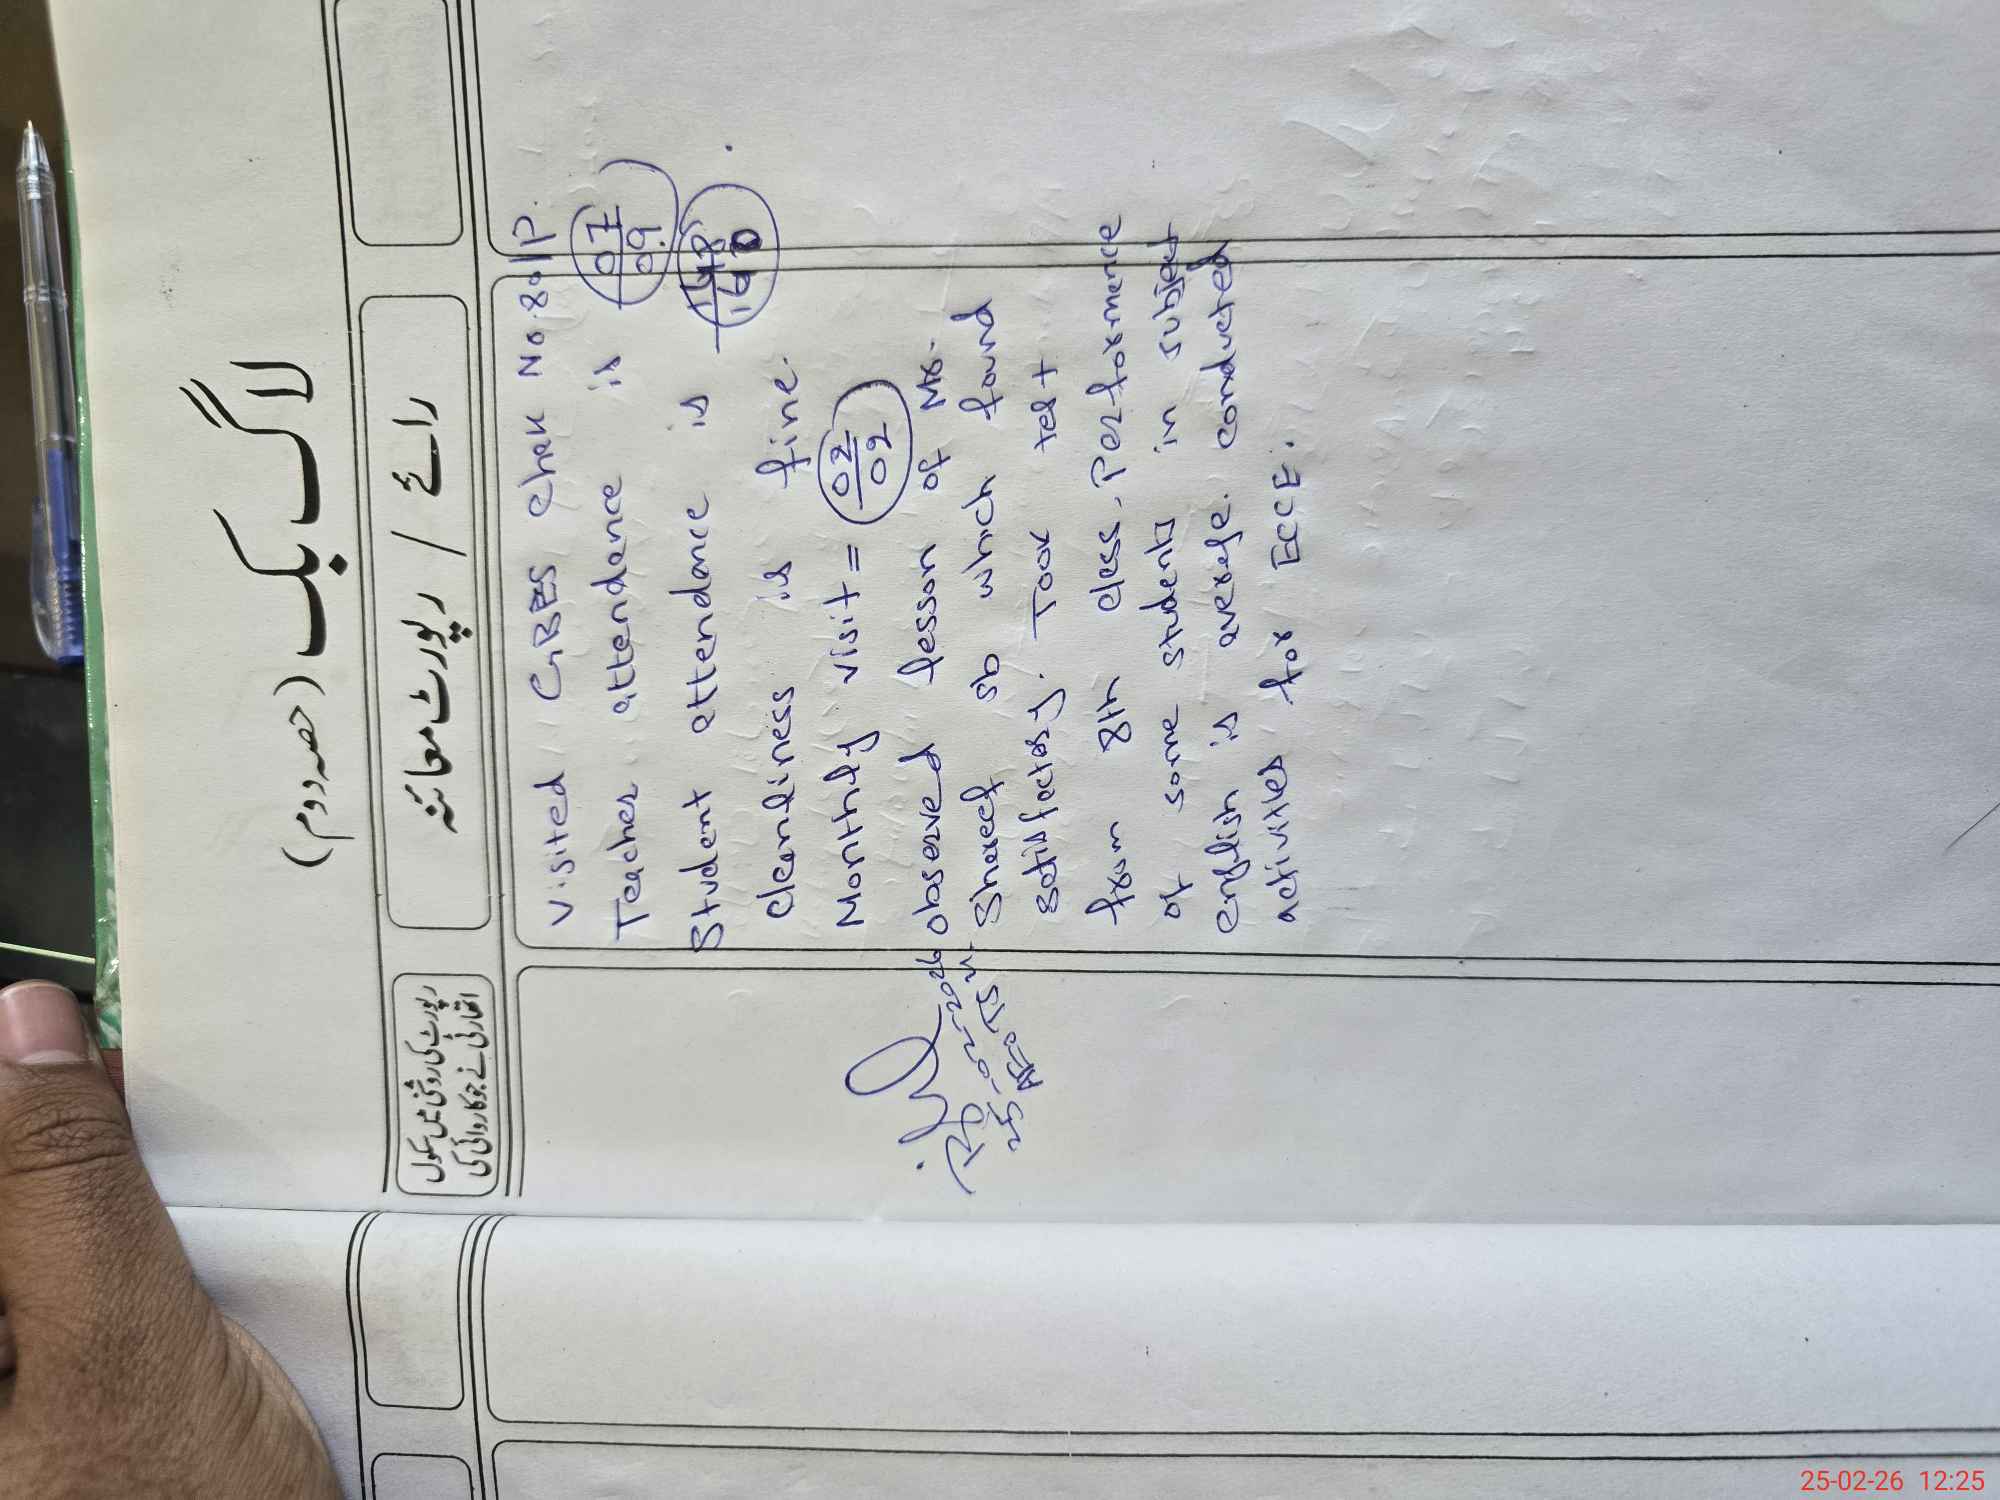 لاگ بک (حصہ دوم)
رائے / رپورٹ معائنہ
رپورٹ کی روشنی میں سکول
اتھارٹی نے جو کاروائی کی
Visited GBES Chak No. 80/P.
Teacher attendence is 07/09
Student attendance is 148/160.
Cleanliness is fine.
Monthly visit = 02/02
Observed lesson of Mr.
Shareef sb which found
satisfactory. Took test
from 8th class. Performence
of some students in subject
english is average. conducted
activities for ECCE.
25-02-2026
AEO
25-02-26 12:25